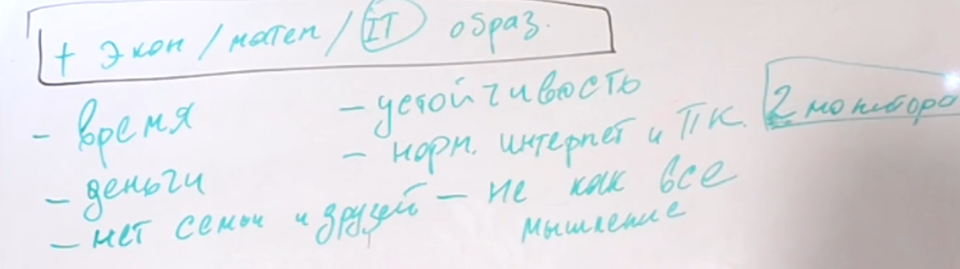 + экон / матем / IT образ.
- время
- деньги
- нет семьи и друзей
- устойчивость
- норм. интернет и ПК. 2 монитора
- не как все
мышление